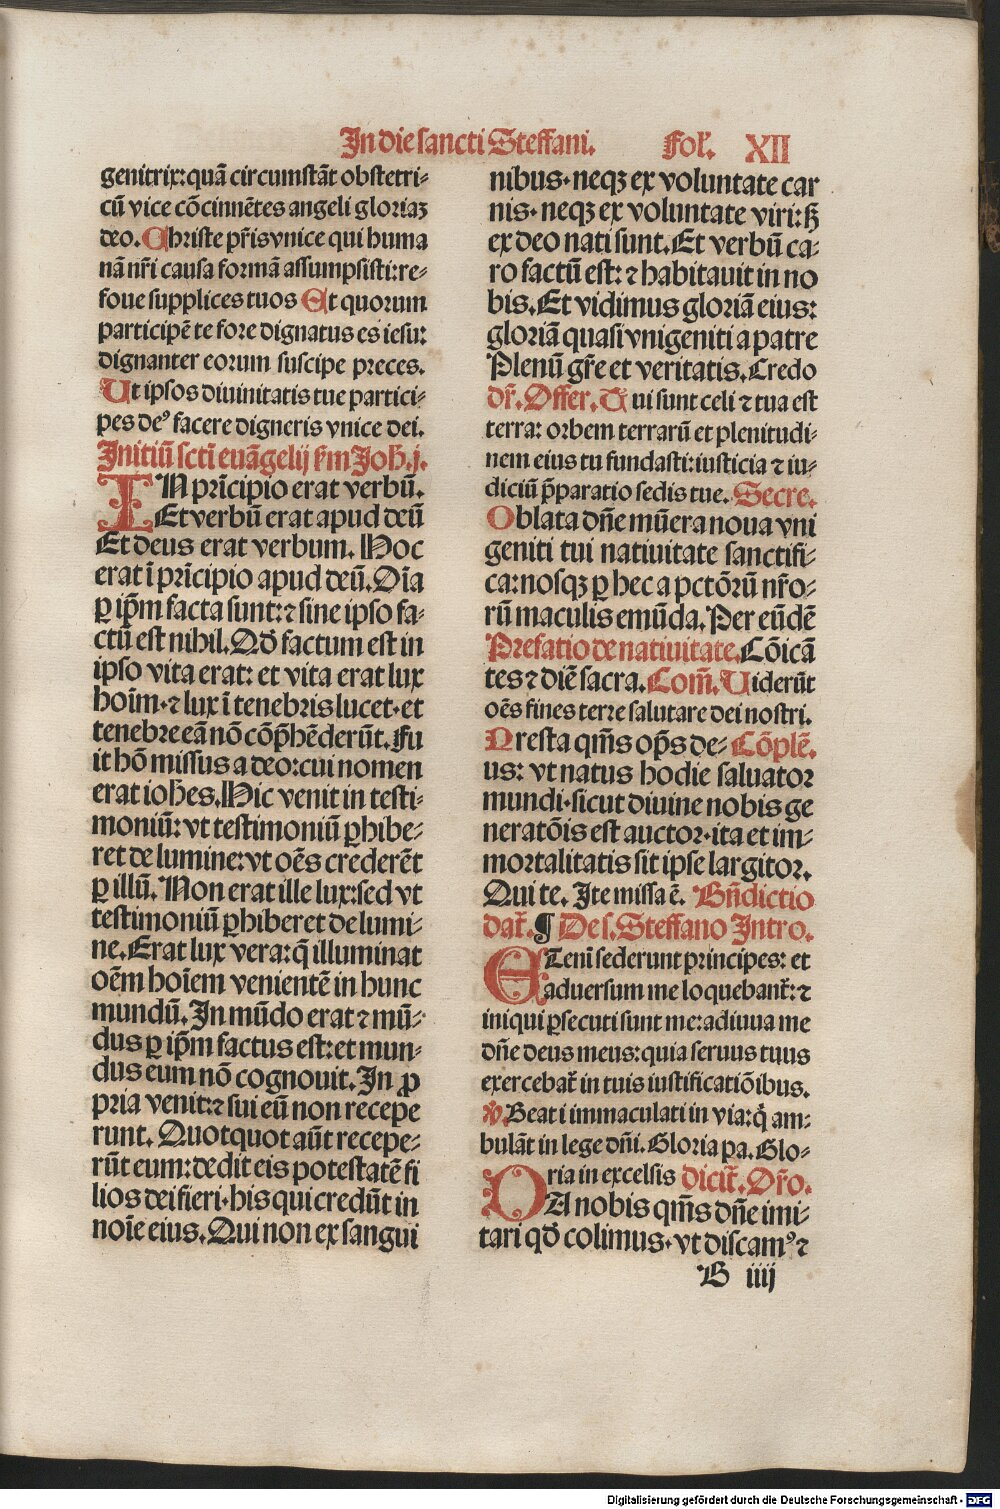 In die sancti Steffani. Fol'. XII
genitrix: quā circumstāt obstetri-
cū vice cōcinnētes angeli gloriaʒ
deo. Christe pr̄is vnice qui huma
nā nr̄i causa formā assumpsisti: re-
foue supplices tuos Et quorum
participē te fore dignatus es iesu:
dignanter eorum suscipe preces.
Ut ipsos diuinitatis tue partici-
pes deꝰ facere digneris vnice dei.
Initiū sctī euāgelij ẜm Joh̄. j.
IN prīcipio erat verbū.
Et verbū erat apud deū
Et deus erat verbum. Hoc
erat ī prīcipio apud deū. Oīa
ꝑ ip̄m facta sunt: ⁊ sine ipso fa-
ctū est nihil. Qd̄ factum est in
ipso vita erat: et vita erat lux
hoīm. ⁊ lux ī tenebris lucet. et
tenebre eā nō cōp̄hēderūt. Fu
it hō missus a deo: cui nomen
erat ioh̄es. Hic venit in testi-
moniū: vt testimoniū ꝑhibe-
ret de lumine: vt oēs crederēt
ꝑ illū. Non erat ille lux: sed vt
testimoniū ꝑhiberet de lumi-
ne. Erat lux vera: q̄ illuminat
oēm hoīem venientē in hunc
mundū. In mūdo erat ⁊ mū-
dus ꝑ ip̄m factus est: et mun-
dus eum nō cognouit. In ꝓ
pria venit: ⁊ sui eū non recepe
runt. Quotquot aūt recepe-
rūt eum: dedit eis potestatē fi
lios dei fieri. his qui credūt in
noīe eius. Qui non ex sangui
nibus. neqꝫ ex voluntate car
nis. neqꝫ ex voluntate viri: sꝫ
ex deo nati sunt. Et verbū ca-
ro factū est: ⁊ habitauit in no
bis. Et vidimus gloriā eius:
gloriā quasi vnigeniti a patre
Plenū gr̄e et veritatis. Credo
dr̄. Offer. Tui sunt celi ⁊ tua est
terra: orbem terrarū et plenitudi-
nem eius tu fundasti: iusticia ⁊ iu-
diciū p̄paratio sedis tue. Secre.
Oblata dn̄e mūera noua vni
geniti tui natiuitate sanctifi-
ca: nosqꝫ ꝑ hec a pctōrū nr̄o-
rū maculis emūda. Per eūdē
Prefatio de natiuitate. Cōicā
tes ⁊ diē sacra. Com̄. Uiderūt
oēs fines terre salutare dei nostri.
Presta qm̄s op̄s de- Cōplē.
us: vt natus hodie saluator
mundi. sicut diuine nobis ge
neratōis est auctor. ita et im-
mortalitatis sit ipse largitor.
Qui te. Ite missa ē. Bn̄dictio
dat̄. ¶ De s. Steffano Intro.
ETenī sederunt principes: et
aduersum me loquebant̄: ⁊
iniqui ꝑsecuti sunt me: adiuua me
dn̄e deus meus: quia seruus tuus
exercebat̄ in tuis iustificatiōibus.
℣. Beati immaculati in via: q̄ am-
bulāt in lege dn̄i. Gloria pa. Glo-
ria in excelsis dicit̄. Or̄o.
DA nobis qm̄s dn̄e imi-
tari qd̄ colimus. vt discamꝰ ⁊
B iiij
Digitalisierung gefördert durch die Deutsche Forschungsgemeinschaft - DFG